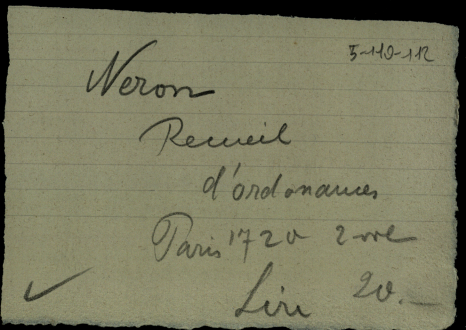 5-110-112
Neron
Recueil
d'ordonances
Paris 1720 2 vol
Lire 20.-